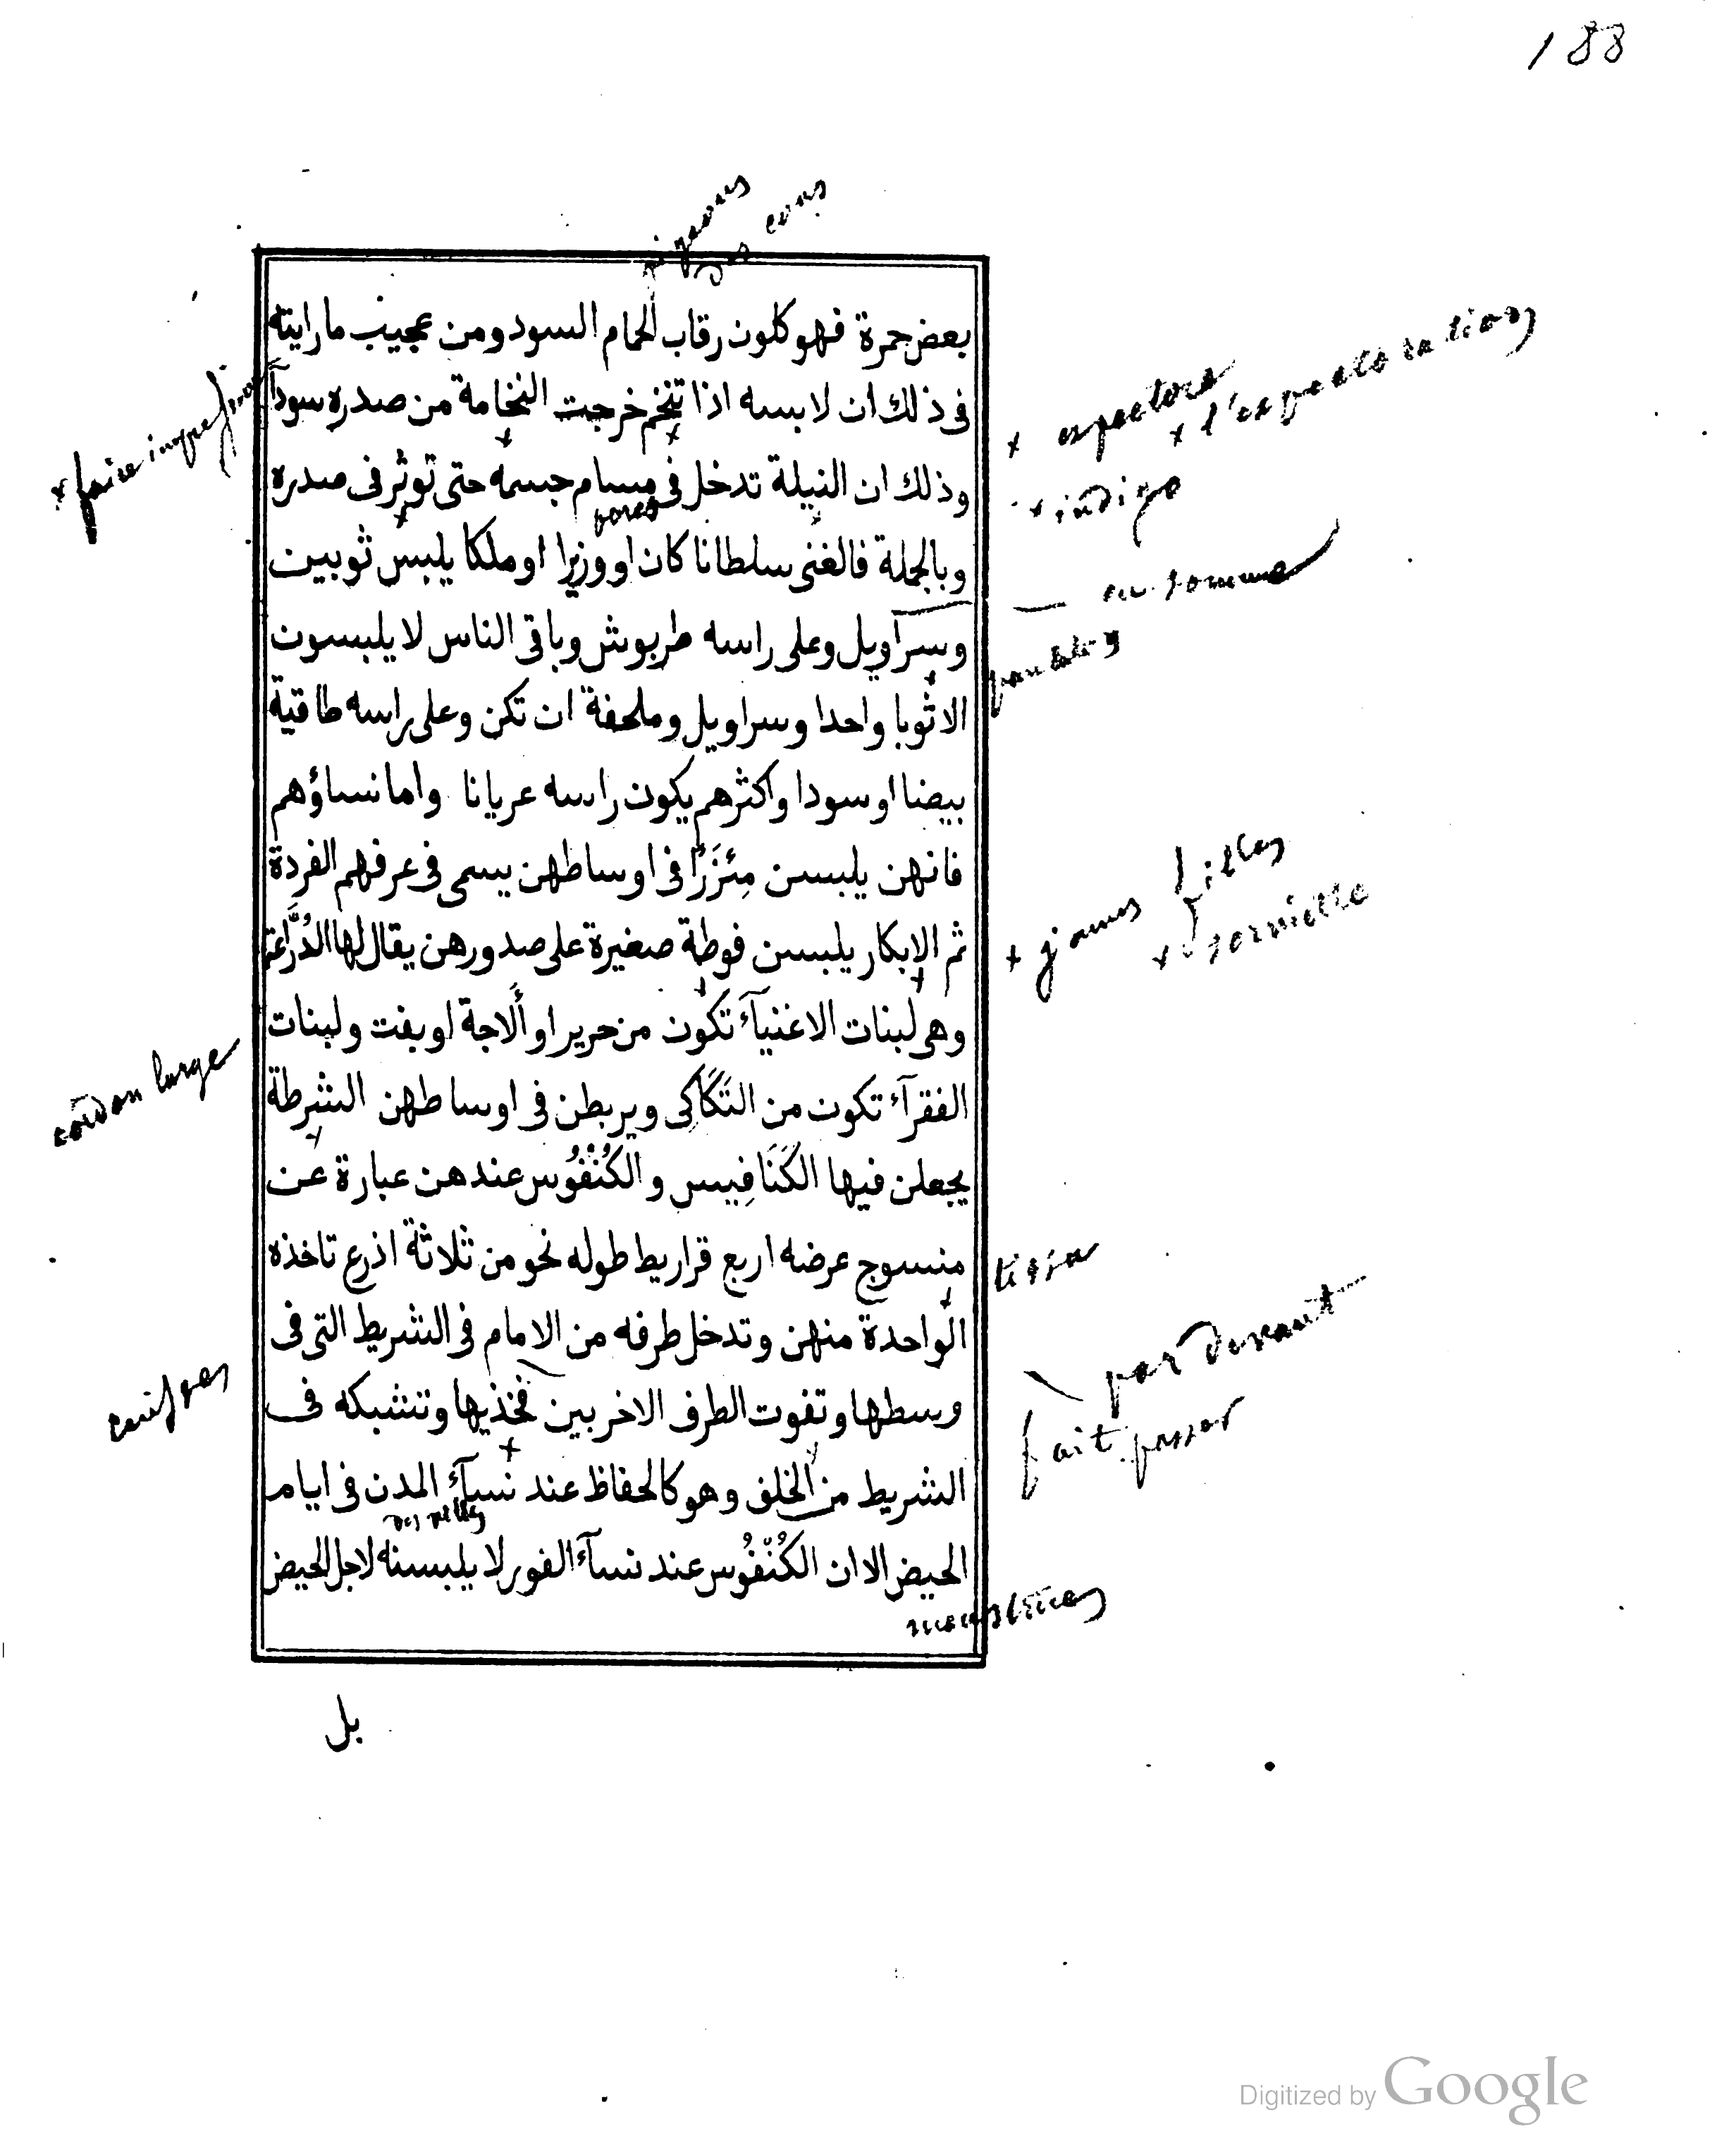 188
des cous
بعض حمرة فهو كلون رقاب الحمام السود ومن عجيب ما رايته
فى ذلك ان لابسه اذا تنخم خرجت النخامة من صدره سودآ
وذلك ان النيلة تدخل فى مسام جسمه حتى توثر فى صدره
وبالجملة فالغنى سلطانا كان او وزيرا او ملكا يلبس ثوبين
وسراويل وعلى راسه طربوش وباقى الناس لا يلبسون
الا ثوبا واحدا وسراويل وملحفة ان تكن وعلى راسه طاقية
بيضا او سودا واكثرهم يكون راسه عريانا واما نساؤهم
فانهن يلبسن مِئزَرًا فى اوساطهن يسمى فى عرفهم الفردة
ثم الابكار يلبسن فوطة صغيرة على صدورهن يقال لها الدُرَّاعة
وهى لبنات الاغنيآء تكون من حرير او أَلاجة او بفت ولبنات
الفقرآء تكون من التَكَاكى ويربطن فى اوساطهن الشرطة
يجعلن فيها الكَنَافِيس والكُنْفُوس عندهن عبارة عن
منسوج عرضه اربع قراريط طوله نحو من ثلاثة اذرع تاخذه
الواحدة منهن وتدخل طرفه من الامام فى الشريط التى فى
وسطها وتفوت الطرف الاخر بين فخذيها وتشبكه فى
الشريط من الخلف وهو كالحفاظ عند نسآء المدن فى ايام
الحيض الا ان الكُنْفُوس عند نسآء الفور لا يلبسنه لاجل الحيض
بل
+ expectore
+ l'expectoration
+ indigo
pores
en somme
+ jeunes filles
+ serviette
cordon large
tissu
par devant
fait passer
cuisses
des villes
menstrues
Digitized by Google